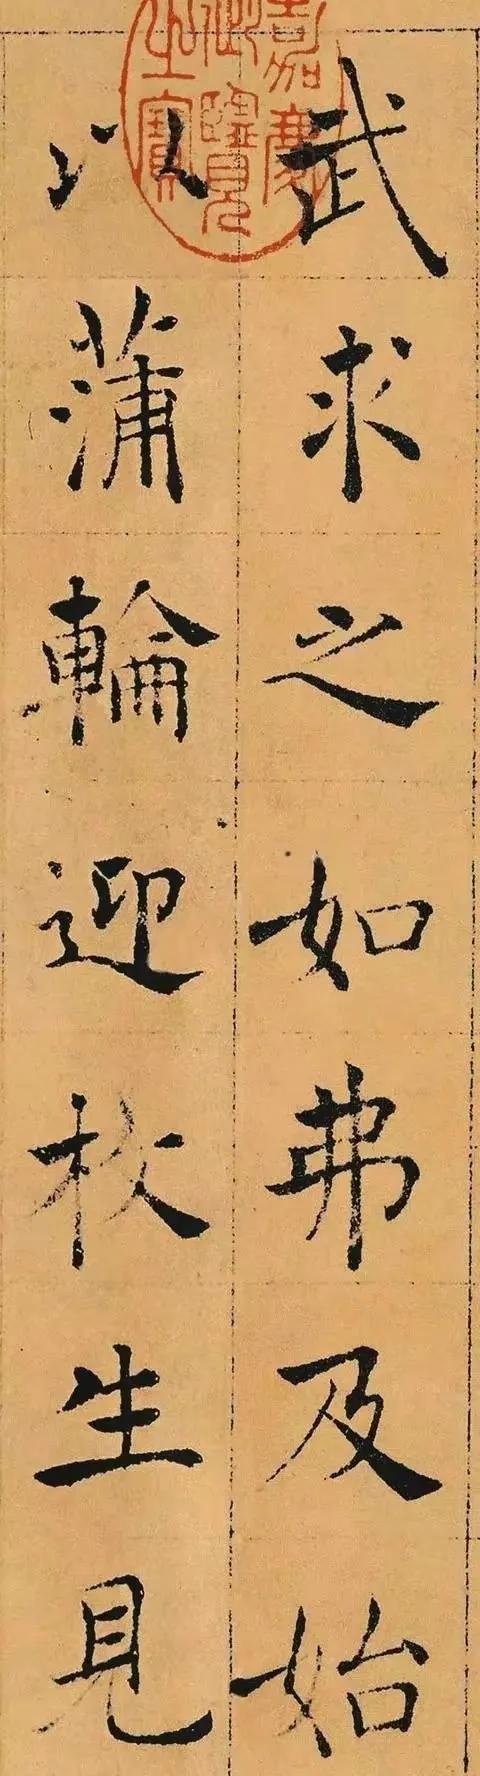 武求之如弗及始
以蒲輪迎枚生見
嘉慶御覽之寶